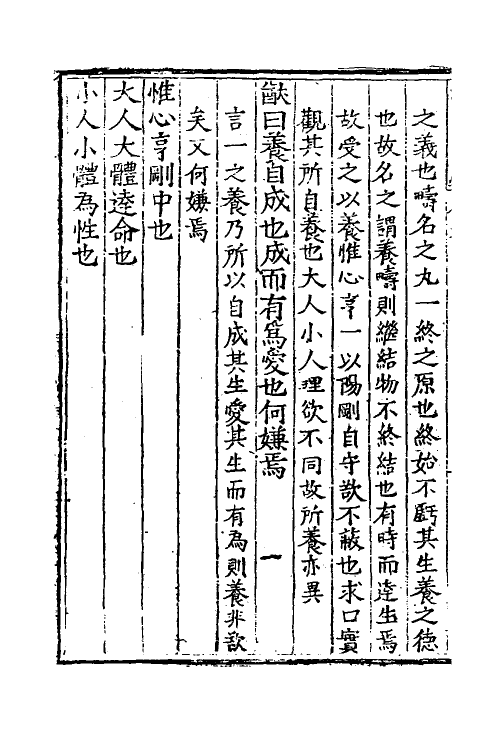 之義也疇名之丸一終之原也終始不虧其生養之德
也故名之謂養疇則繼結物不終結也有時而逹生焉
故受之以養惟心亨一以陽剛自守欲不蔽也求口實
觀其所自養也大人小人理欲不同故所養亦異
猷曰養自成也成而有爲愛也何嫌焉 一
言一之養乃所以自成其生愛其生而有為則養非欲
矣又何嫌焉
惟心亨剛中也
大人大體逹命也
小人小體為性也